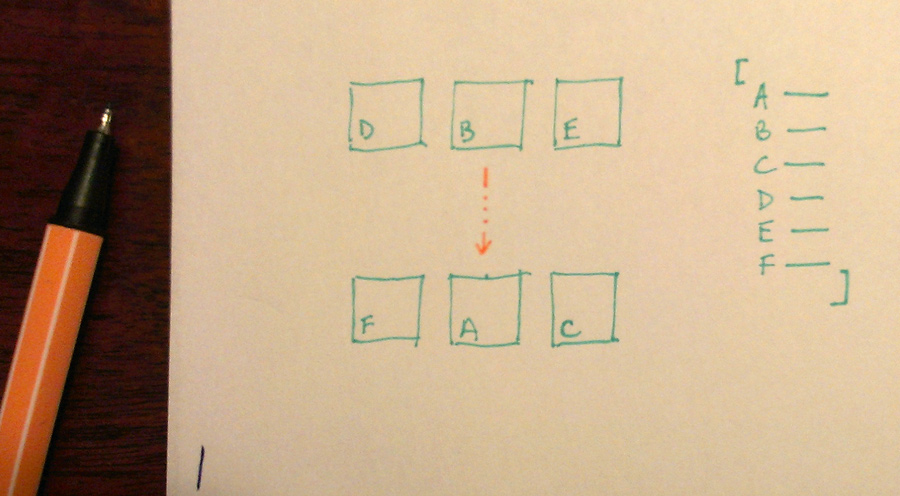 D B E
F A C
[
A —
B —
C —
D —
E —
F —
]